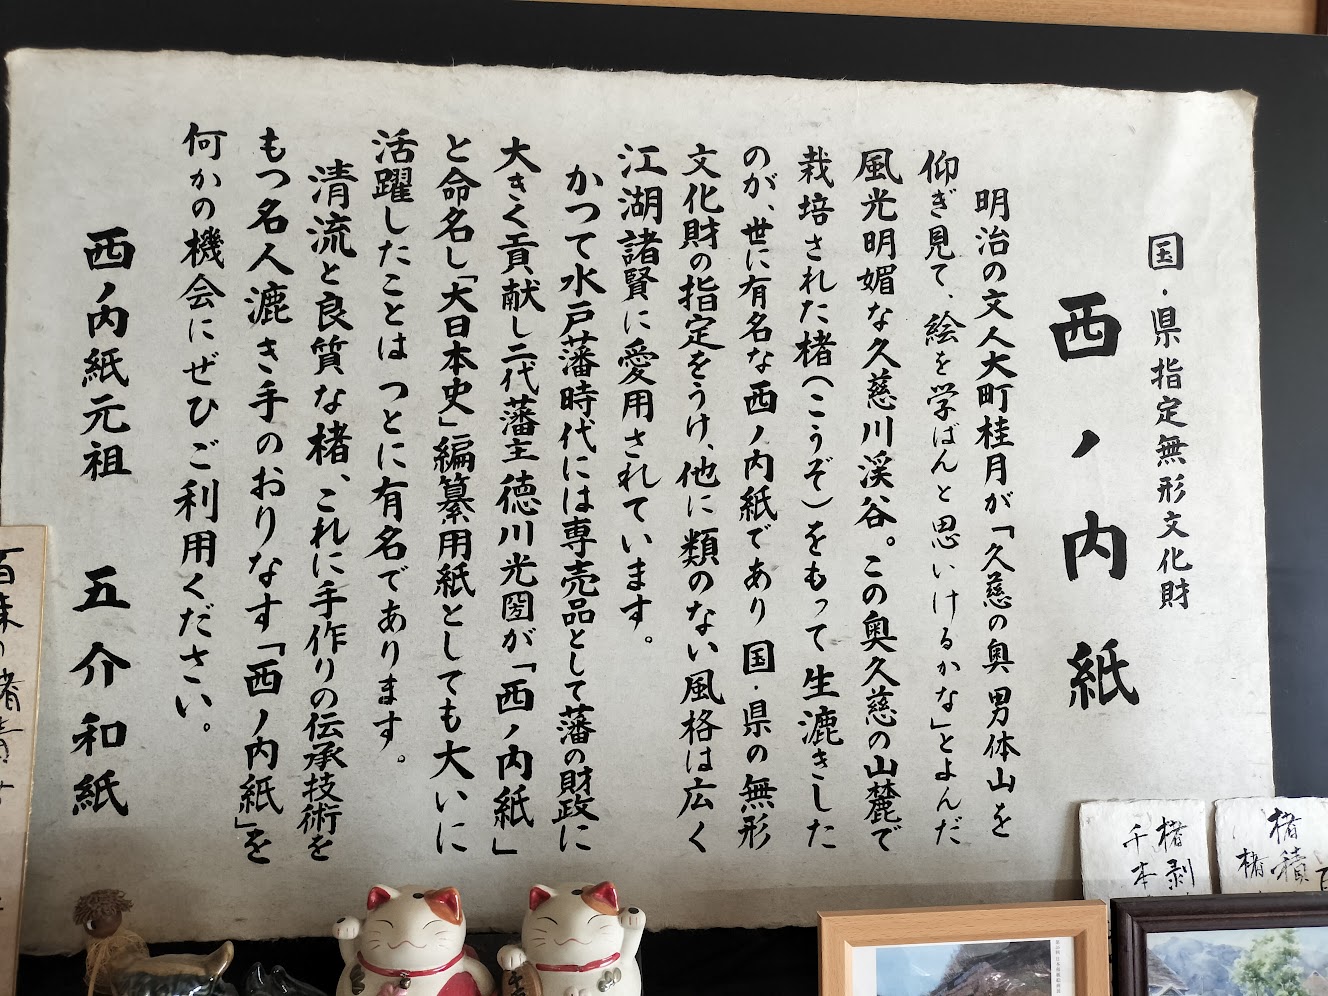 国・県指定無形文化財
西ノ内紙
明治の文人大町桂月が「久慈の奥 男体山を
仰ぎ見て、絵を学ばんと思いけるかな」とよんだ
風光明媚な久慈川渓谷。この奥久慈の山麓で
栽培された楮(こうぞ)をもって生漉きした
のが、世に有名な西ノ内紙であり 国・県の無形
文化財の指定をうけ、他に類のない風格は広く
江湖諸賢に愛用されています。
かつて水戸藩時代には専売品として藩の財政に
大きく貢献し二代藩主徳川光圀が「西ノ内紙」
と命名し「大日本史」編纂用紙としても大いに
活躍したことは つとに有名であります。
清流と良質な楮、これに手作りの伝承技術を
もつ名人漉き手のおりなす「西ノ内紙」を
何かの機会にぜひご利用ください。
西ノ内紙元祖 五介和紙
楮剥
千本
楮積
楮